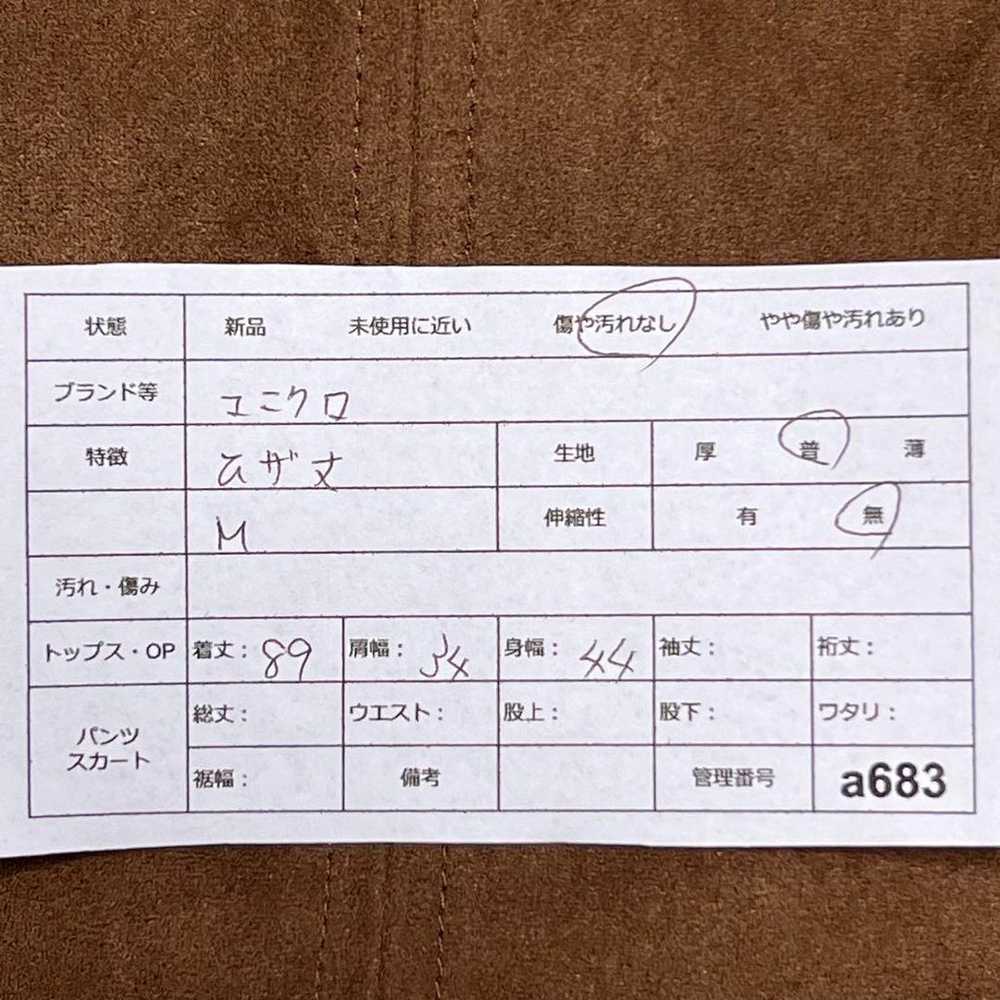 状態 新品 未使用に近い 傷や汚れなし やや傷や汚れあり
ブランド等 ユニクロ
特徴 ひざ丈 生地 厚 普 薄
M 伸縮性 有 無
汚れ・傷み
トップス・OP 着丈：89 肩幅：34 身幅：44 袖丈： 裄丈：
パンツ スカート 総丈： ウエスト： 股上： 股下： ワタリ：
裾幅： 備考 管理番号 a683